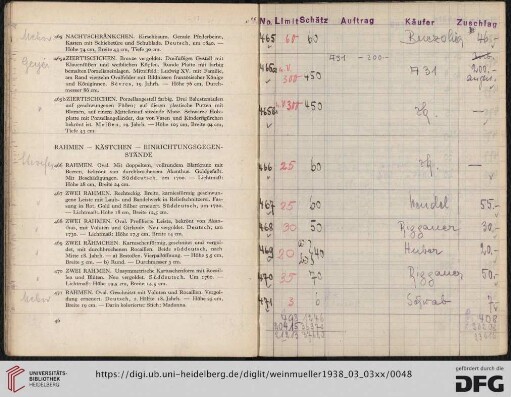 465 NACHTSCHRÄNKCHEN. Kirschbaum. Gerade Pfeilerbeine,
Kasten mit Schiebetüre und Schublade. Deutsch, um 1820. —
Höhe 74 cm, Breite 43 cm, Tiefe 30 cm.
465a ZIERTISCHCHEN. Bronze vergoldet. Dreifüßiges Gestell mit
Klauenfüßen und weiblichen Köpfen. Runde Platte mit farbig
bemalten Porzellaneinlagen. Mittelbild: Ludwig XV. mit Familie,
am Rand vierzehn Ovalbilder mit Bildnissen französischer Könige
und Königinnen. Sèvres, 19. Jahrh. — Höhe 76 cm, Durch-
messer 86 cm.
465b ZIERTISCHCHEN. Porzellangestell farbig. Drei Balusterstäbe
auf geschwungenen Füßen; auf diesen plastische Putten mit
Blumen, auf einem Mittelstand sitzende Muse. Schwarze Holz-
platte mit Porzellangeländer, das von Vasen und Kinderfigürchen
bekrönt ist. Meißen, 19. Jahrh. — Höhe 103 cm, Breite 94 cm,
Tiefe 43 cm.
RAHMEN — KÄSTCHEN — EINRICHTUNGSGEGEN-
STÄNDE
466 RAHMEN. Oval. Mit doppeltem, vollrundem Blattkranz mit
Beeren, bekrönt von durchbrochenem Akanthus. Goldgefaßt.
Mit Beschädigungen. Süddeutsch, um 1700. — Lichtmaß:
Höhe 28 cm, Breite 24 cm.
467 ZWEI RAHMEN. Rechteckig. Breite, karniesförmig geschwun-
gene Leiste mit Laub- und Bandelwerk in Reliefschnitzerei. Fas-
sung in Rot, Gold und Silber erneuert. Süddeutsch, um 1720.
— Lichtmaß: Höhe 18 cm, Breite 14,5 cm.
468 ZWEI RAHMEN. Oval. Profilierte Leiste, bekrönt von Akan-
thus, mit Voluten und Girlande. Neu vergoldet. Deutsch, um
1730. — Lichtmaß: Höhe 17,3 cm, Breite 13 cm.
469 ZWEI RÄHMCHEN. Kartuschenförmig, geschnitzt und vergol-
det, mit durchbrochenen Rocaillen. Beide süddeutsch, nach
Mitte 18. Jahrh. — a) Rosetten. Vierpaßöffnung. — Höhe 5,5 cm,
Breite 5 cm. — b) Rund. — Durchmesser 5 cm.
470 ZWEI RAHMEN. Unsymmetrische Kartuschenform mit Rocail-
len und Blüten. Neu vergoldet. Süddeutsch. Um 1760. —
Lichtmaß: Höhe 19,5 cm, Breite 14,5 cm.
471 RAHMEN. Oval. Geschnitzt mit Voluten und Rocaillen. Vergol-
dung erneuert. Deutsch, 2. Hälfte 18. Jahrh. — Höhe 25 cm,
Breite 19 cm. — Darin kolorierter Stich: Madonna.
46
No. Limit Schätz Auftrag Käufer Zuschlag
465 60 60 465.-
731 - 200.-
465a 300 450 731 200.-
465b 300 450
466 25 60
467 25 60 55.-
468 30 50 Riggauer 30.-
469 20 40 Huber 20.-
470 35 70 Riggauer 50.-
471 3 Schwab 7.-
UNIVERSITÄTS-
BIBLIOTHEK
HEIDELBERG
https://digi.ub.uni-heidelberg.de/diglit/weinmueller1938_03_03xx/0048
gefördert durch die
DFG